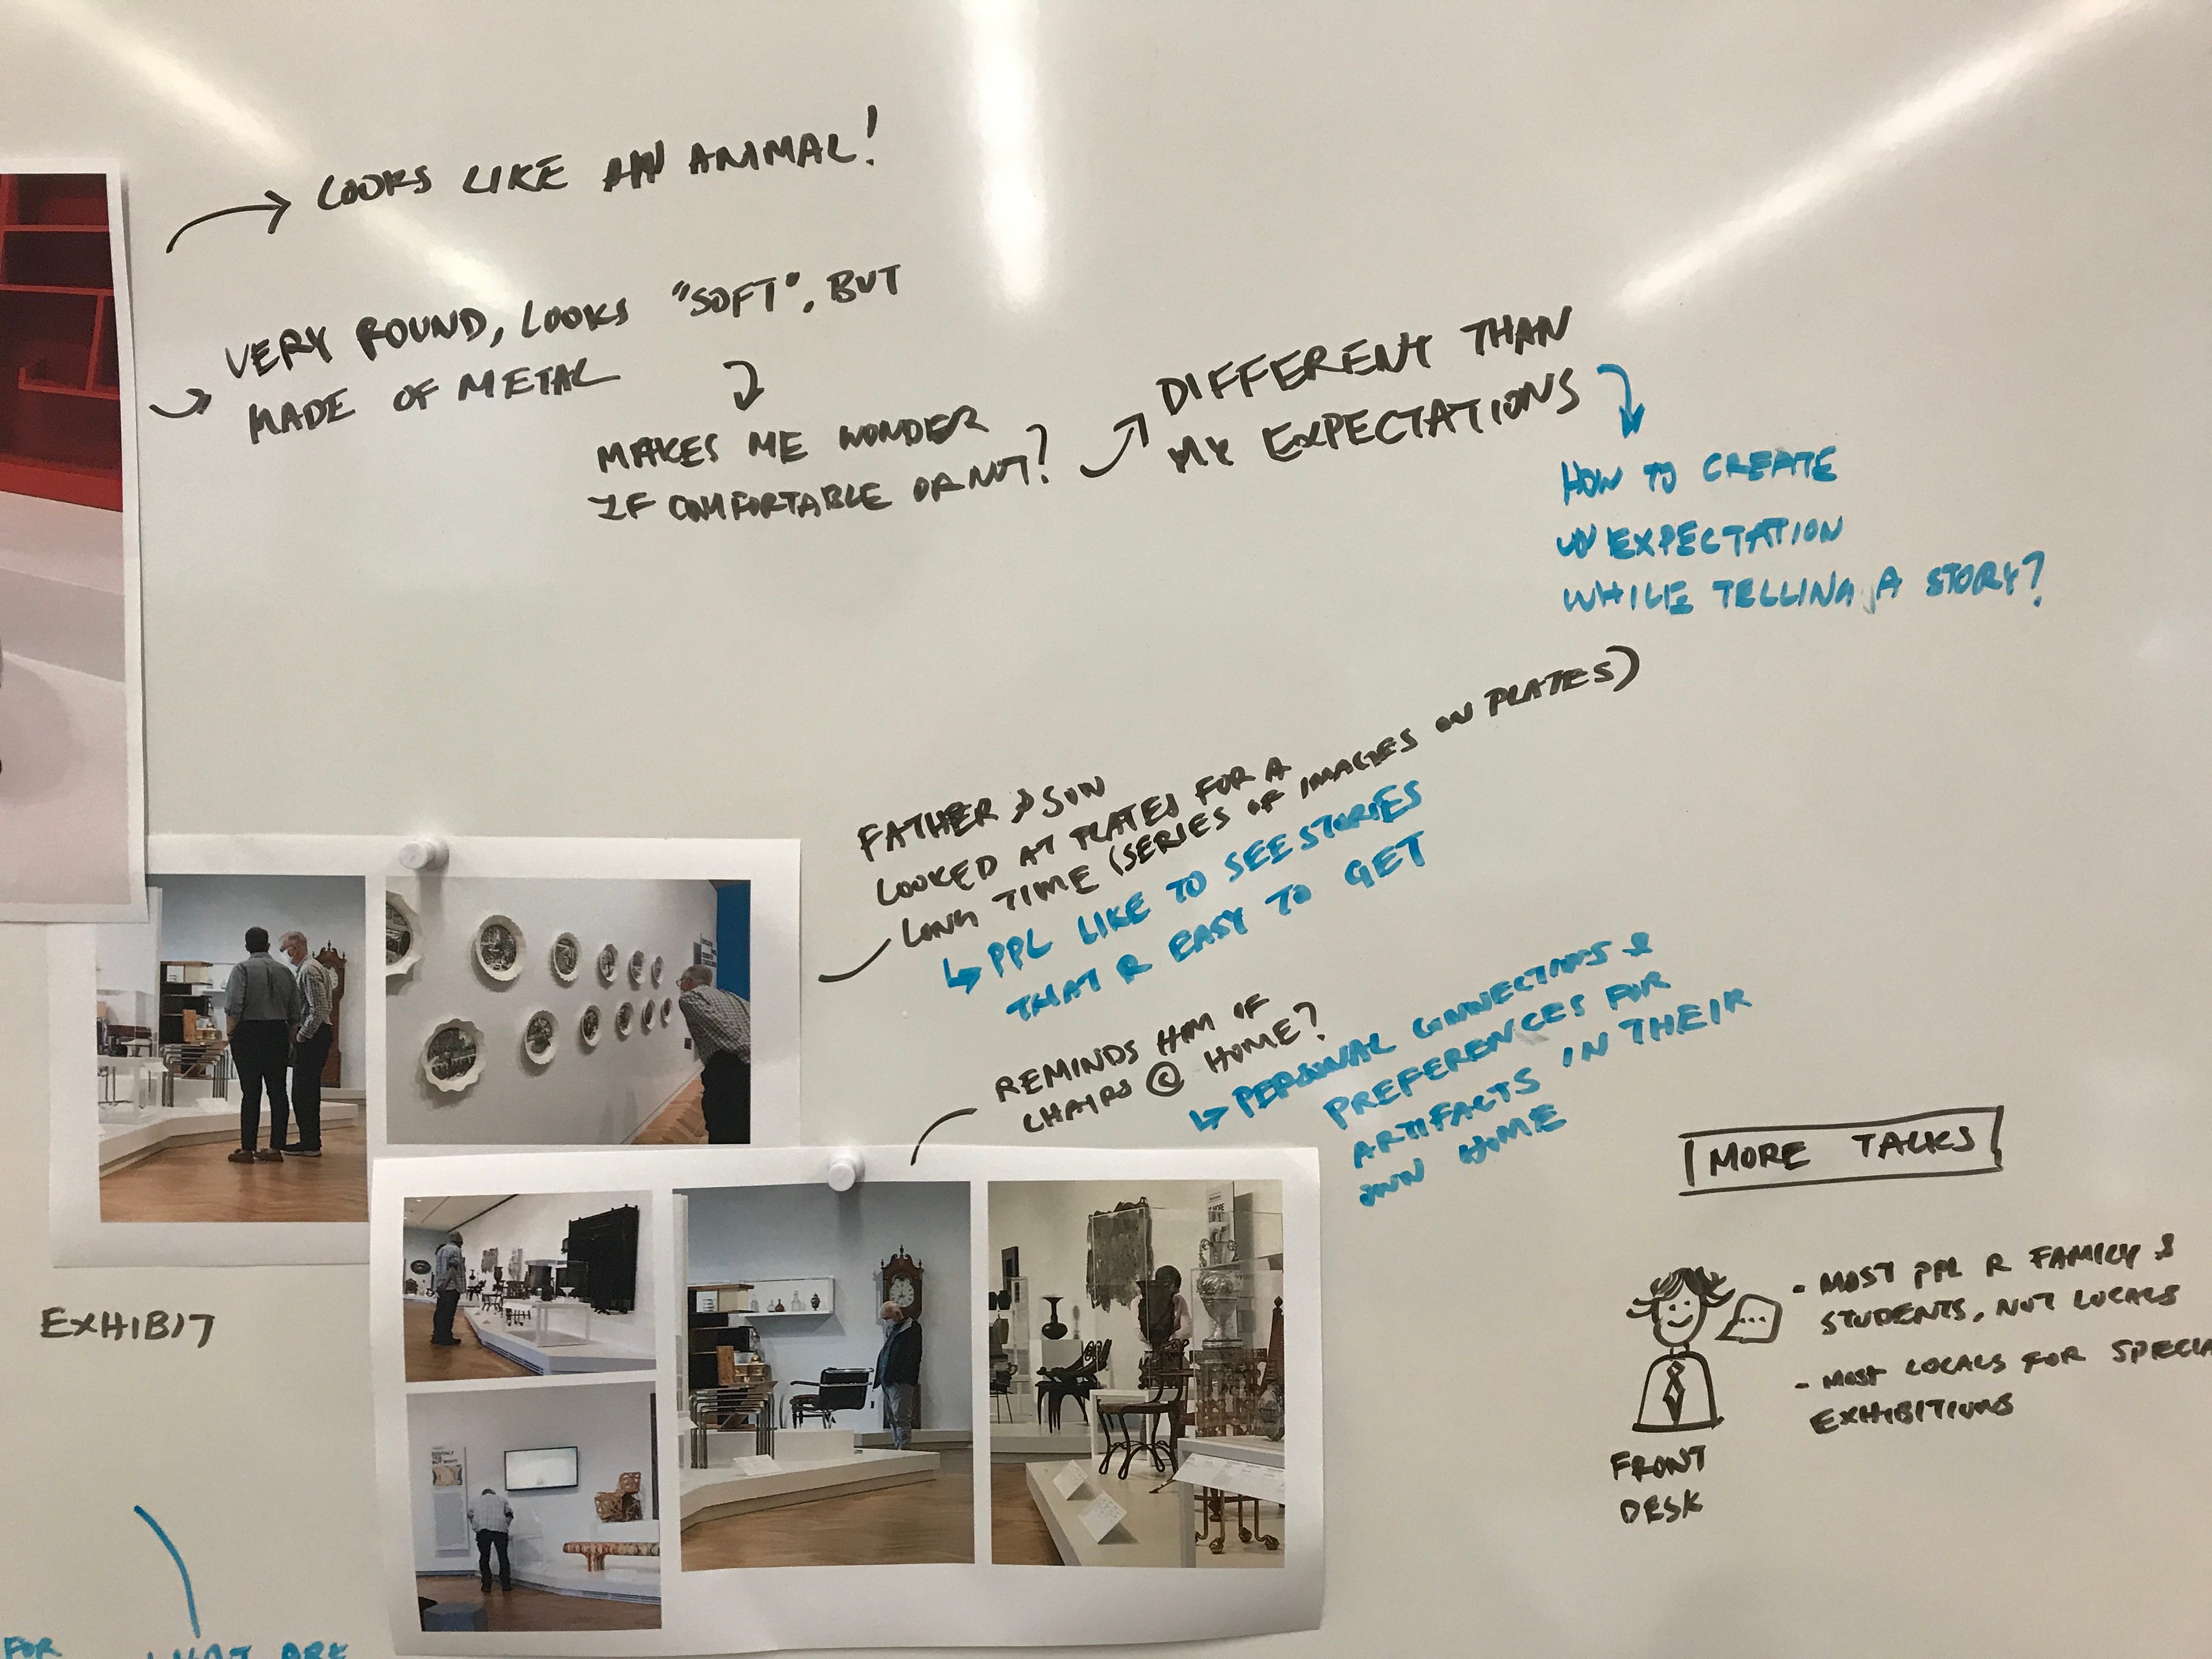 LOOKS LIKE AN ANIMAL!
VERY ROUND, LOOKS "SOFT", BUT
MADE OF METAL
MAKES ME WONDER
IF COMFORTABLE OR NOT?
DIFFERENT THAN
MY EXPECTATIONS
HOW TO CREATE
UNEXPECTATION
WHILE TELLING A STORY?
FATHER & SON
LOOKED AT PLATES FOR A
LONG TIME (SERIES OF IMAGES ON PLATES)
PPL LIKE TO SEE STORIES
THAT R EASY TO GET
REMINDS HIM OF
CHAIRS @ HOME?
PERSONAL CONNECTIONS &
PREFERENCES FOR
ARTIFACTS IN THEIR
OWN HOME
MORE TALKS
- MOST PPL R FAMILY &
STUDENTS, NOT LOCALS
- MOST LOCALS FOR SPECIA
EXHIBITIONS
FRONT
DESK
EXHIBIT
FOR WHAT ARE